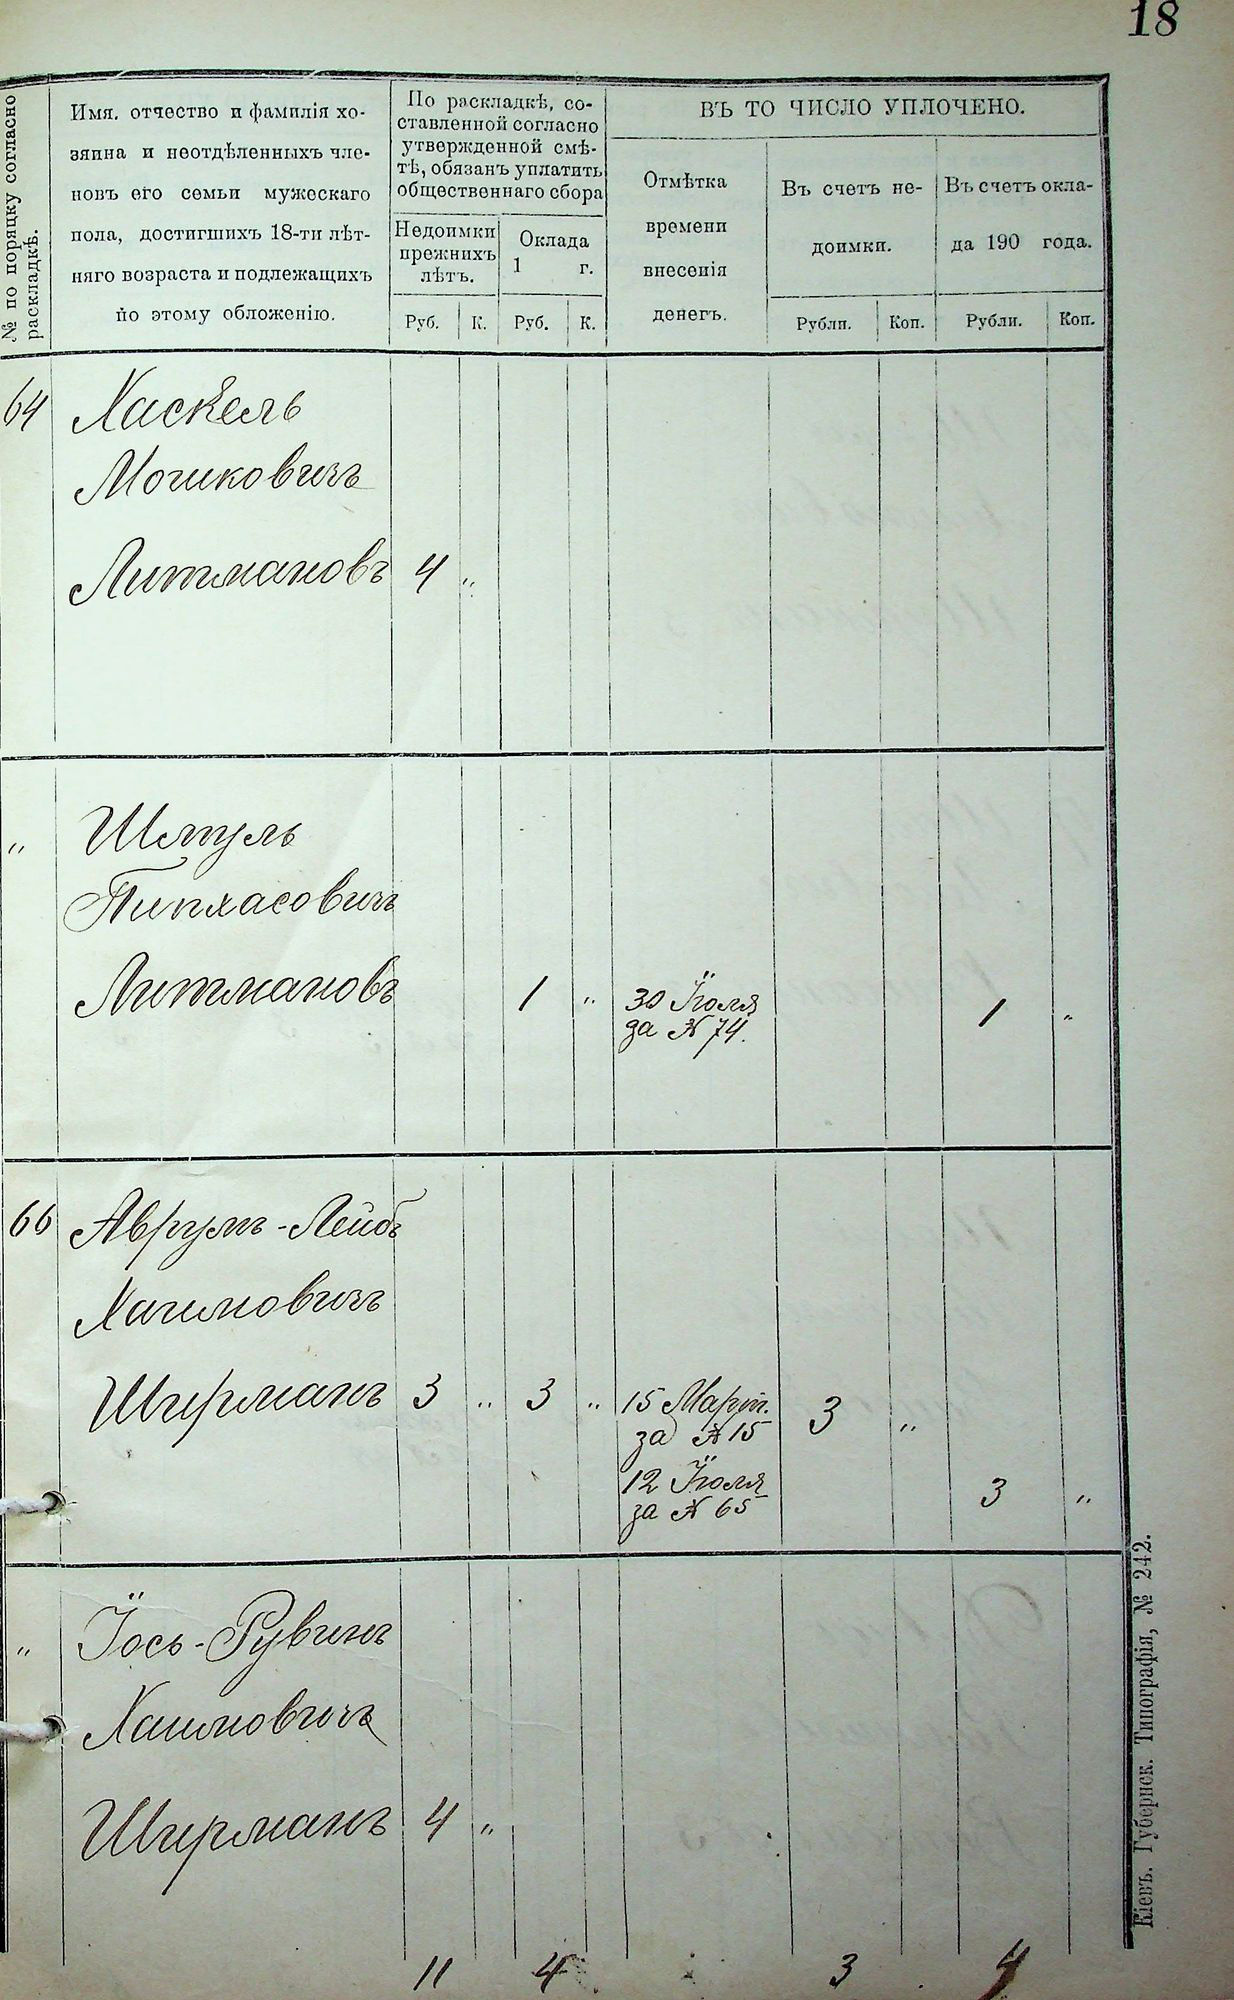 18
№ по порядку согласно
раскладкѣ.
Имя, отчество и фамилія хо-
зяина и неотдѣленныхъ чле-
новъ его семьи мужескаго
пола, достигшихъ 18-ти лѣт-
няго возраста и подлежащихъ
по этому обложенію.
По раскладкѣ, со-
ставленной согласно
утвержденной смѣ-
тѣ, обязанъ уплатить
общественнаго сбора
Недоимки
прежнихъ
лѣтъ.
Оклада
1 г.
Руб. К. Руб. К.
ВЪ ТО ЧИСЛО УПЛОЧЕНО.
Отмѣтка
времени
внесенія
денегъ.
Въ счетъ не-
доимки.
Въ счетъ окла-
да 190 года.
Рубли. Коп. Рубли. Коп.
64 Хаскель
Мошковичъ
Литмановъ 4 „
„ Шмуль
Пинхасовичъ
Литмановъ 1 „ 30 Іюля 1 „
за № 74.
66 Аврумъ-Лейбъ
Хаимовичъ
Ширманъ 3 „ 3 „ 15 Март. 3 „
за № 15
12 Іюля 3 „
за № 65
„ Іось-Рувинъ
Хаимовичъ
Ширманъ 4 „
11 4 3 4
Кіевъ. Губернск. Типографія, № 242.